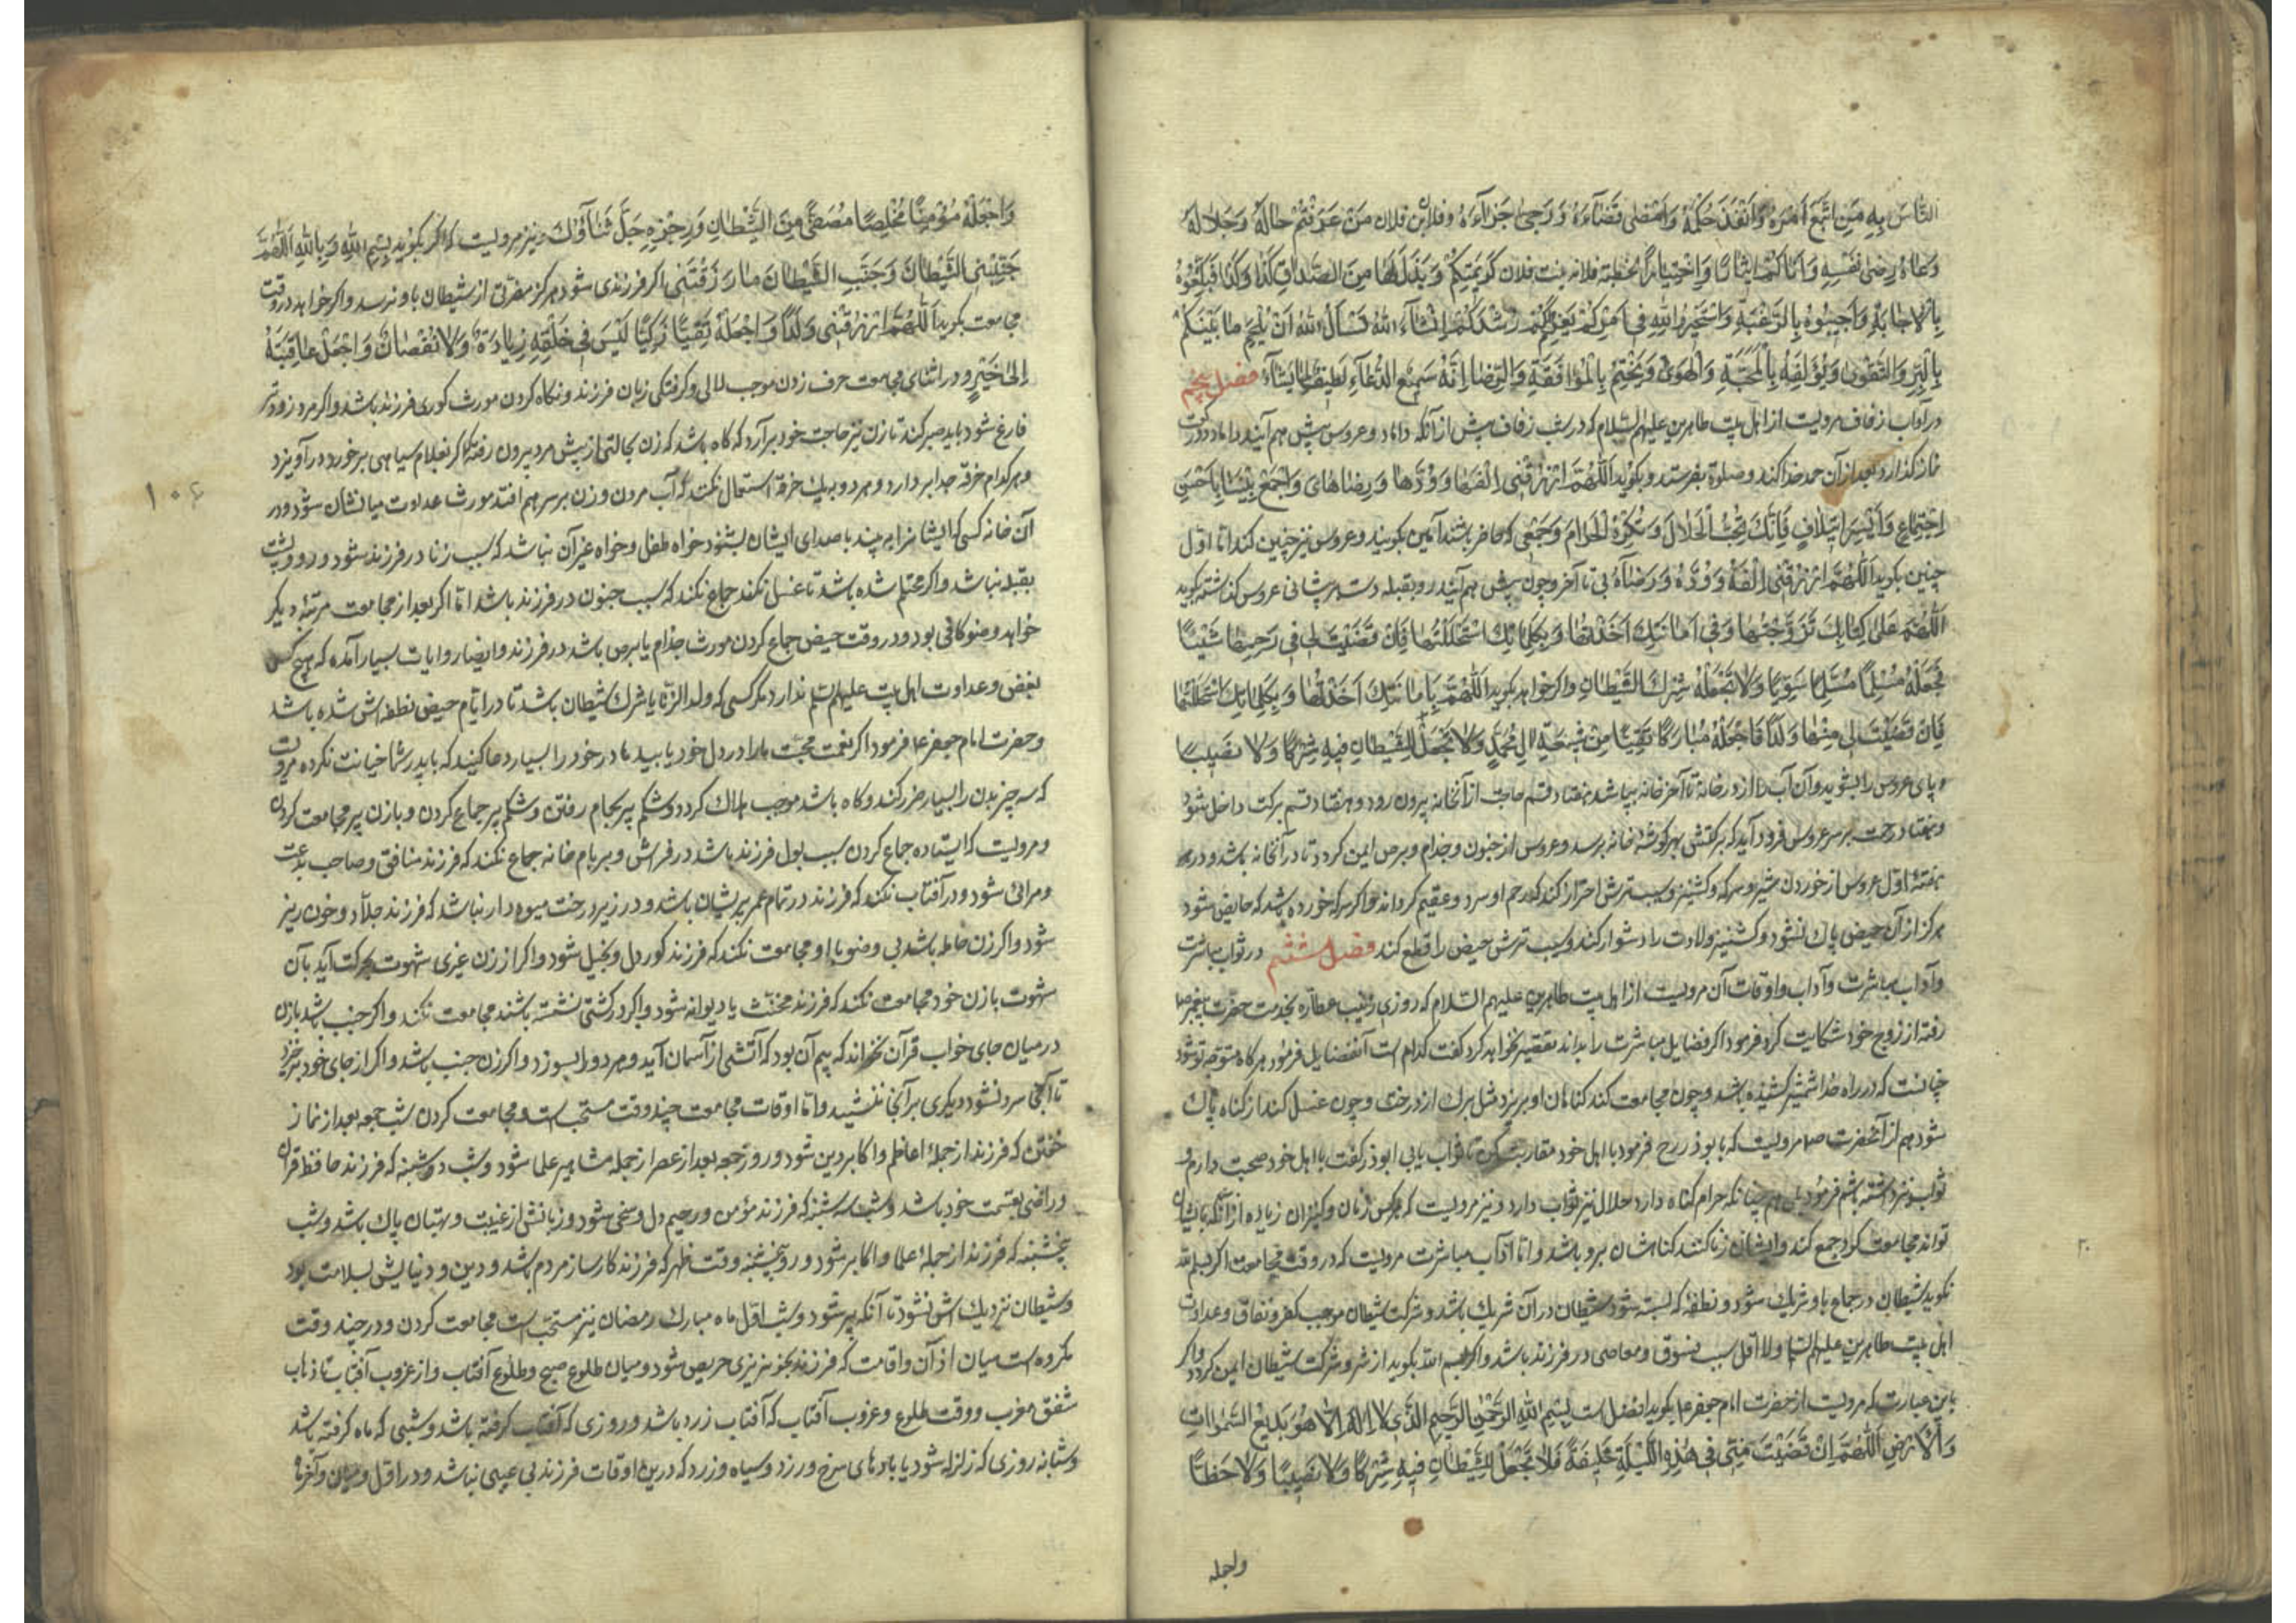 النَّاسَ بِهِ مَنِ اتَّبَعَ اَمْرَهُ وَاَنْفَذَ حُكْمَهُ وَاَمْضٰى قَضَآءَهُ وَ رَجٰى جَزَآءَهُ وفلان بن فلان مَنْ عَرَفْتُمْ حالَهُ وَجَلالَهُ
دَعاهُ رِضى نَفْسِهِ وَ اَتاكُمْ ايثارًا وَاخْتِيارًا لخطبة فلانه بنت فلان كَريمَتِكُمْ وَ بَذَلَ لَها مِنَ الصَّداقِ كَذا وَ كَذا فَتَلَقَّوْهُ
بِالْاِجابَةِ وَاَجيبُوهُ بِالرَّغْبَةِ وَاسْتَخيرُوا اللهَ فى اُمُورِكُمْ يَعْزِمْ لَكُمْ رُشْدَكُمْ اِنْشآءَ اللهُ نَسْأَلُ اللهَ اَنْ يُلْحِمَ ما بَيْنَكُمْ
بِالْبِرِّ وَالتَّقْوٰى وَيُؤَلِّفَهُ بِالْمَحَبَّةِ وَالْهَوٰى وَيَخْتِمَهُ بِالْمُوافَقَةِ وَالرِّضا اِنَّهُ سَميعُ الدُّعآءِ لَطيفٌ لِما يَشآءُ فصل پنجم
در آداب زفاف مرویست از اهل بیت طاهرین علیهم السلام که در شب زفاف پیش از آنکه داماد و عروس پیش هم آیند داماد دو رکعت
نماز گذارد و بعد از آن حمد خدا کند و صلوة بفرستد و بگوید اَللّهُمَّ ارْزُقْنى اِلْفَها وَ وُدَّها وَ رِضاها بى وَ اجْمَعْ بَيْنَنا بِاَحْسَنِ
اجْتِماعٍ وَ اَيْسَرِ ايتِلافٍ فَاِنَّكَ تُحِبُّ الْحَلالَ وَ تَكْرَهُ الْحَرامَ وَ جمعی که حاضر باشند آمین بگویند و عروس نیز چنین کند اما اول
چنین بگوید اَللّهُمَّ ارْزُقْنى اِلْفَهُ وَ وُدَّهُ وَ رِضآهُ بى تا آخر و چون پیش هم آیند رو بقبله دست بر پیشانی عروس گذاشته بگوید
اَللّهُمَّ عَلى كِتابِكَ تَزَوَّجْتُها وَفى اَمانَتِكَ اَخَذْتُها وَ بِكَلِماتِكَ اسْتَحْلَلْتُها فَاِنْ قَضَيْتَ لى فى رَحِمِها شَيْئًا
فَجْعَلْهُ مُسْلِمًا سَوِيًّا وَلا تَجْعَلْهُ شِرْكَ الشَّيْطانِ و اگر خواهد بگوید اَللّهُمَّ بِاَمانَتِكَ اَخَذْتُها وَ بِكَلِماتِكَ اسْتَحْلَلْتُها
فَاِنْ قَضَيْتَ لى مِنْها وَلَدًا فَاجْعَلْهُ مُبارَكًا تَقِيًّا مِنْ شيعَةِ الِ مُحَمَّدٍ وَلا تَجْعَلْ لِلشَّيْطانِ فيهِ شِرْكًا وَلا نَصيبًا
و پای عروس را بشوید و آن آب را از در خانه تا آخر خانه بپاشد هفتاد قسم حاجت از آنخانه بیرون رود و هفتاد قسم برکت داخل شود
و هفتاد رحمت بر سر عروس فرود آید که برکتش بهر گوشهٔ خانه برسد و عروس از جنون و جذام و برص ایمن گردد تا در آنخانه باشد و در
هفتهٔ اول عروس از خوردن شیر و سرکه و کشنیز و سیب ترش احتراز کند که رحم او سرد و عقیم گرداند و اگر سرکه خورده باشد که حایض شود
هرگز از آن حیض پاک نشود و کشنیز ولادت را دشوار کند و سیب ترش حیض را قطع کند فصل ششم در ثواب مباشرت
و آداب مباشرت و آداب و اوقات آن مرویست از اهل بیت طاهرین علیهم السلام که روزی زینب عطاره بخدمت حضرت پیغمبر ص
رفته از زوج خود شکایت کرد فرمود اگر فضایل مباشرت را بداند تقصیر نخواهد کرد گفت کدام است آنفضایل فرمود هر گاه متوجه تو شود
چنانست که در راه خدا شمشیر کشیده باشد و چون مجامعت کند گناهان او بریزد مثل برگ از درخت و چون غسل کند از گناه پاک
شود هم از آنحضرت ص مرویست که بابوذر رح فرمود با اهل خود مقاربت کن تا ثواب یابی ابوذر گفت با اهل خود صحبت دارم و
ثواب نیز داشته باشم فرمود بلی هم چنانکه حرام گناه دارد حلال نیز ثواب دارد و نیز مرویست که هر کس زنان و کنیزان زیاده از آنکه بایشان
تواند مجامعت کرد جمع کند و ایشان زنا کنند گناهشان برو باشد و اما آداب مباشرت مرویست که در وقت مجامعت اگر بسم الله
نگوید شیطان در جماع با و شریک شود و نطفهٔ که بسته شود شیطان در آن شریک باشد و شرکت شیطان موجب کفر و نفاق و عداوت
اهل بیت طاهرین علیهم السلام ولا اقل سبب فسوق و معاصی در فرزند باشد و اگر بسم الله بگوید از شر و شرکت شیطان ایمن گردد و اگر
باین عبارت که مرویست از حضرت امام جعفر ع بگوید افضل است بِسْمِ اللهِ الرَّحْمنِ الرَّحيمِ الَّذى لا اِلهَ اِلاّ هُوَ بَديعُ السَّمواتِ
وَالْاَرْضِ اَللّهُمَّ اِنْ قَضَيْتَ مِنّى فى هذِهِ اللَّيْلَةِ خَليفَةً فَلا تَجْعَلْ لِلشَّيْطانِ فيهِ شِرْكًا وَلا نَصيبًا وَلا حَظًّا
واجعله
وَ اجْعَلْهُ مُؤْمِنًا مُخْلِصًا مُصَفًّى مِنَ الشَّيْطانِ وَ رِجْزِهِ جَلَّ ثَنآؤُكَ و نیز مرویست که اگر بگوید بِسْمِ اللهِ وَ بِاللهِ اَللّهُمَّ
جَنِّبْنِى الشَّيْطانَ وَ جَنِّبِ الشَّيْطانَ ما رَزَقْتَنى اگر فرزندی شود هرگز مضرتی از شیطان باو نرسد و اگر خواهد در وقت
مجامعت بگوید اَللّهُمَّ ارْزُقْنى وَلَدًا وَ اجْعَلْهُ تَقِيًّا زَكِيًّا لَيْسَ فى خَلْقِهِ زِيادَةٌ وَلا نُقْصانٌ وَ اجْعَلْ عاقِبَتَهُ
اِلى خَيْرٍ و در اثنای مجامعت حرف زدن موجب لالی و گرفتگی زبان فرزند و نگاه کردن مورث کوری فرزند باشد و اگر مرد زودتر
فارغ شود باید صبر کند تا زن نیز حاجت خود برآرد که گاه باشد که زن بحالتی از پیش مرد بیرون رفته که اگر بغلام سیاهی برخورد در آویزد
و هر کدام خرقه جدا بر دارد و هر دو بیک خرقه استعمال نکنند که آب مرد و زن بر سر هم افتد مورث عداوت میانشان شود و در
آن خانه کسی که ایشانرا به بیند یا صدای ایشان بشنود خواه طفل و خواه غیر آن نباشد که سبب زنا در فرزند شود و رو و پشت
بقبله نباشد و اگر محتلم شده باشد تا غسل نکند جماع نکند که سبب جنون در فرزند باشد اما اگر بعد از مجامعت مرتبهٔ دیگر
خواهد وضو کافی بود و در وقت حیض جماع کردن مورث جذام یا برص باشد در فرزند و ایضا روایات بسیار آمده که هیچ کس
بغض و عداوت اهل بیت علیهم السلم ندارد مگر کسی که ولد الزنا یا شرک شیطان باشد تا در ایام حیض نطفه اش شده باشد
و حضرت امام جعفر ع فرمود اگر نعمت محبت ما را در دل خود یابید مادر خود را بسیار دعا کنید که با پدر شما خیانت نکرده مرویست
که سه چیز بدن را بسیار ضرر کند و گاه باشد موجب هلاک گردد و شکم پر بحمام رفتن و شکم پر جماع کردن و با زن پیر مجامعت کردن
و مرویست که ایستاده جماع کردن سبب بول فرزند باشد در فراش و بر بام خانه جماع نکند که فرزند منافق و صاحب بدعت
و مرائی شود و در آفتاب نکند که فرزند در تمام عمر پریشان باشد و در زیر درخت میوه دار نباشد که فرزند جلاد و خون ریز
شود و اگر زن حامله باشد بی وضو با او مجامعت نکند که فرزند کور دل و بخیل شود و اگر از زن غیری شهوت بحرکت آید با آن
شهوت با زن خود مجامعت نکند که فرزند مخنث یا دیوانه شود و اگر در کشتی نشسته باشند مجامعت نکند و اگر جنب باشد با زن
در میان جای خواب قرآن نخواند که بیم آن بود که آتشی از آسمان آید و هر دو را بسوزد و اگر زن جنب باشد و اگر از جای خود برخیزد
تا آنجا سرد نشود دیگری بر آنجا ننشیند و اما اوقات مجامعت چند وقت مستحب است و مجامعت کردن شب جمعه بعد از نماز
خفتن که فرزند از جملهٔ اعاظم و اکابر دین شود و روز جمعه بعد از عصر از جمله مشاهیر علما شود و شب دوشنبه که فرزند حافظ قرآن
و راضی بقسمت خود باشد و شب سه شنبه که فرزند مؤمن و رحیم دل و سخی شود و زبانش از غیبت و بهتان پاک باشد و شب
پنجشنبه که فرزند از جملهٔ علما و اکابر شود و روز پنجشنبه وقت ظهر که فرزند کارساز مردم باشد و دین و دنیایش بسلامت بود
و شیطان نزدیک اش نشود تا آنکه پیر شود و شب اول ماه مبارک رمضان نیز مستحب است مجامعت کردن و در چند وقت
مکروه است میان اذان و اقامت که فرزند بخونریزی حریص شود و میان طلوع صبح و طلوع آفتاب و از غروب آفتاب تا ذهاب
شفق مغرب و وقت طلوع و غروب آفتاب که آفتاب زرد باشد و روزی که آفتاب گرفته باشد و شبی که ماه گرفته باشد
و شبانه روزی که زلزله شود یا بادهای سرخ و زرد و سیاه وزد که درین اوقات فرزند بی عیبی نباشد و در اول و میان و آخر ماه
۱۰۶